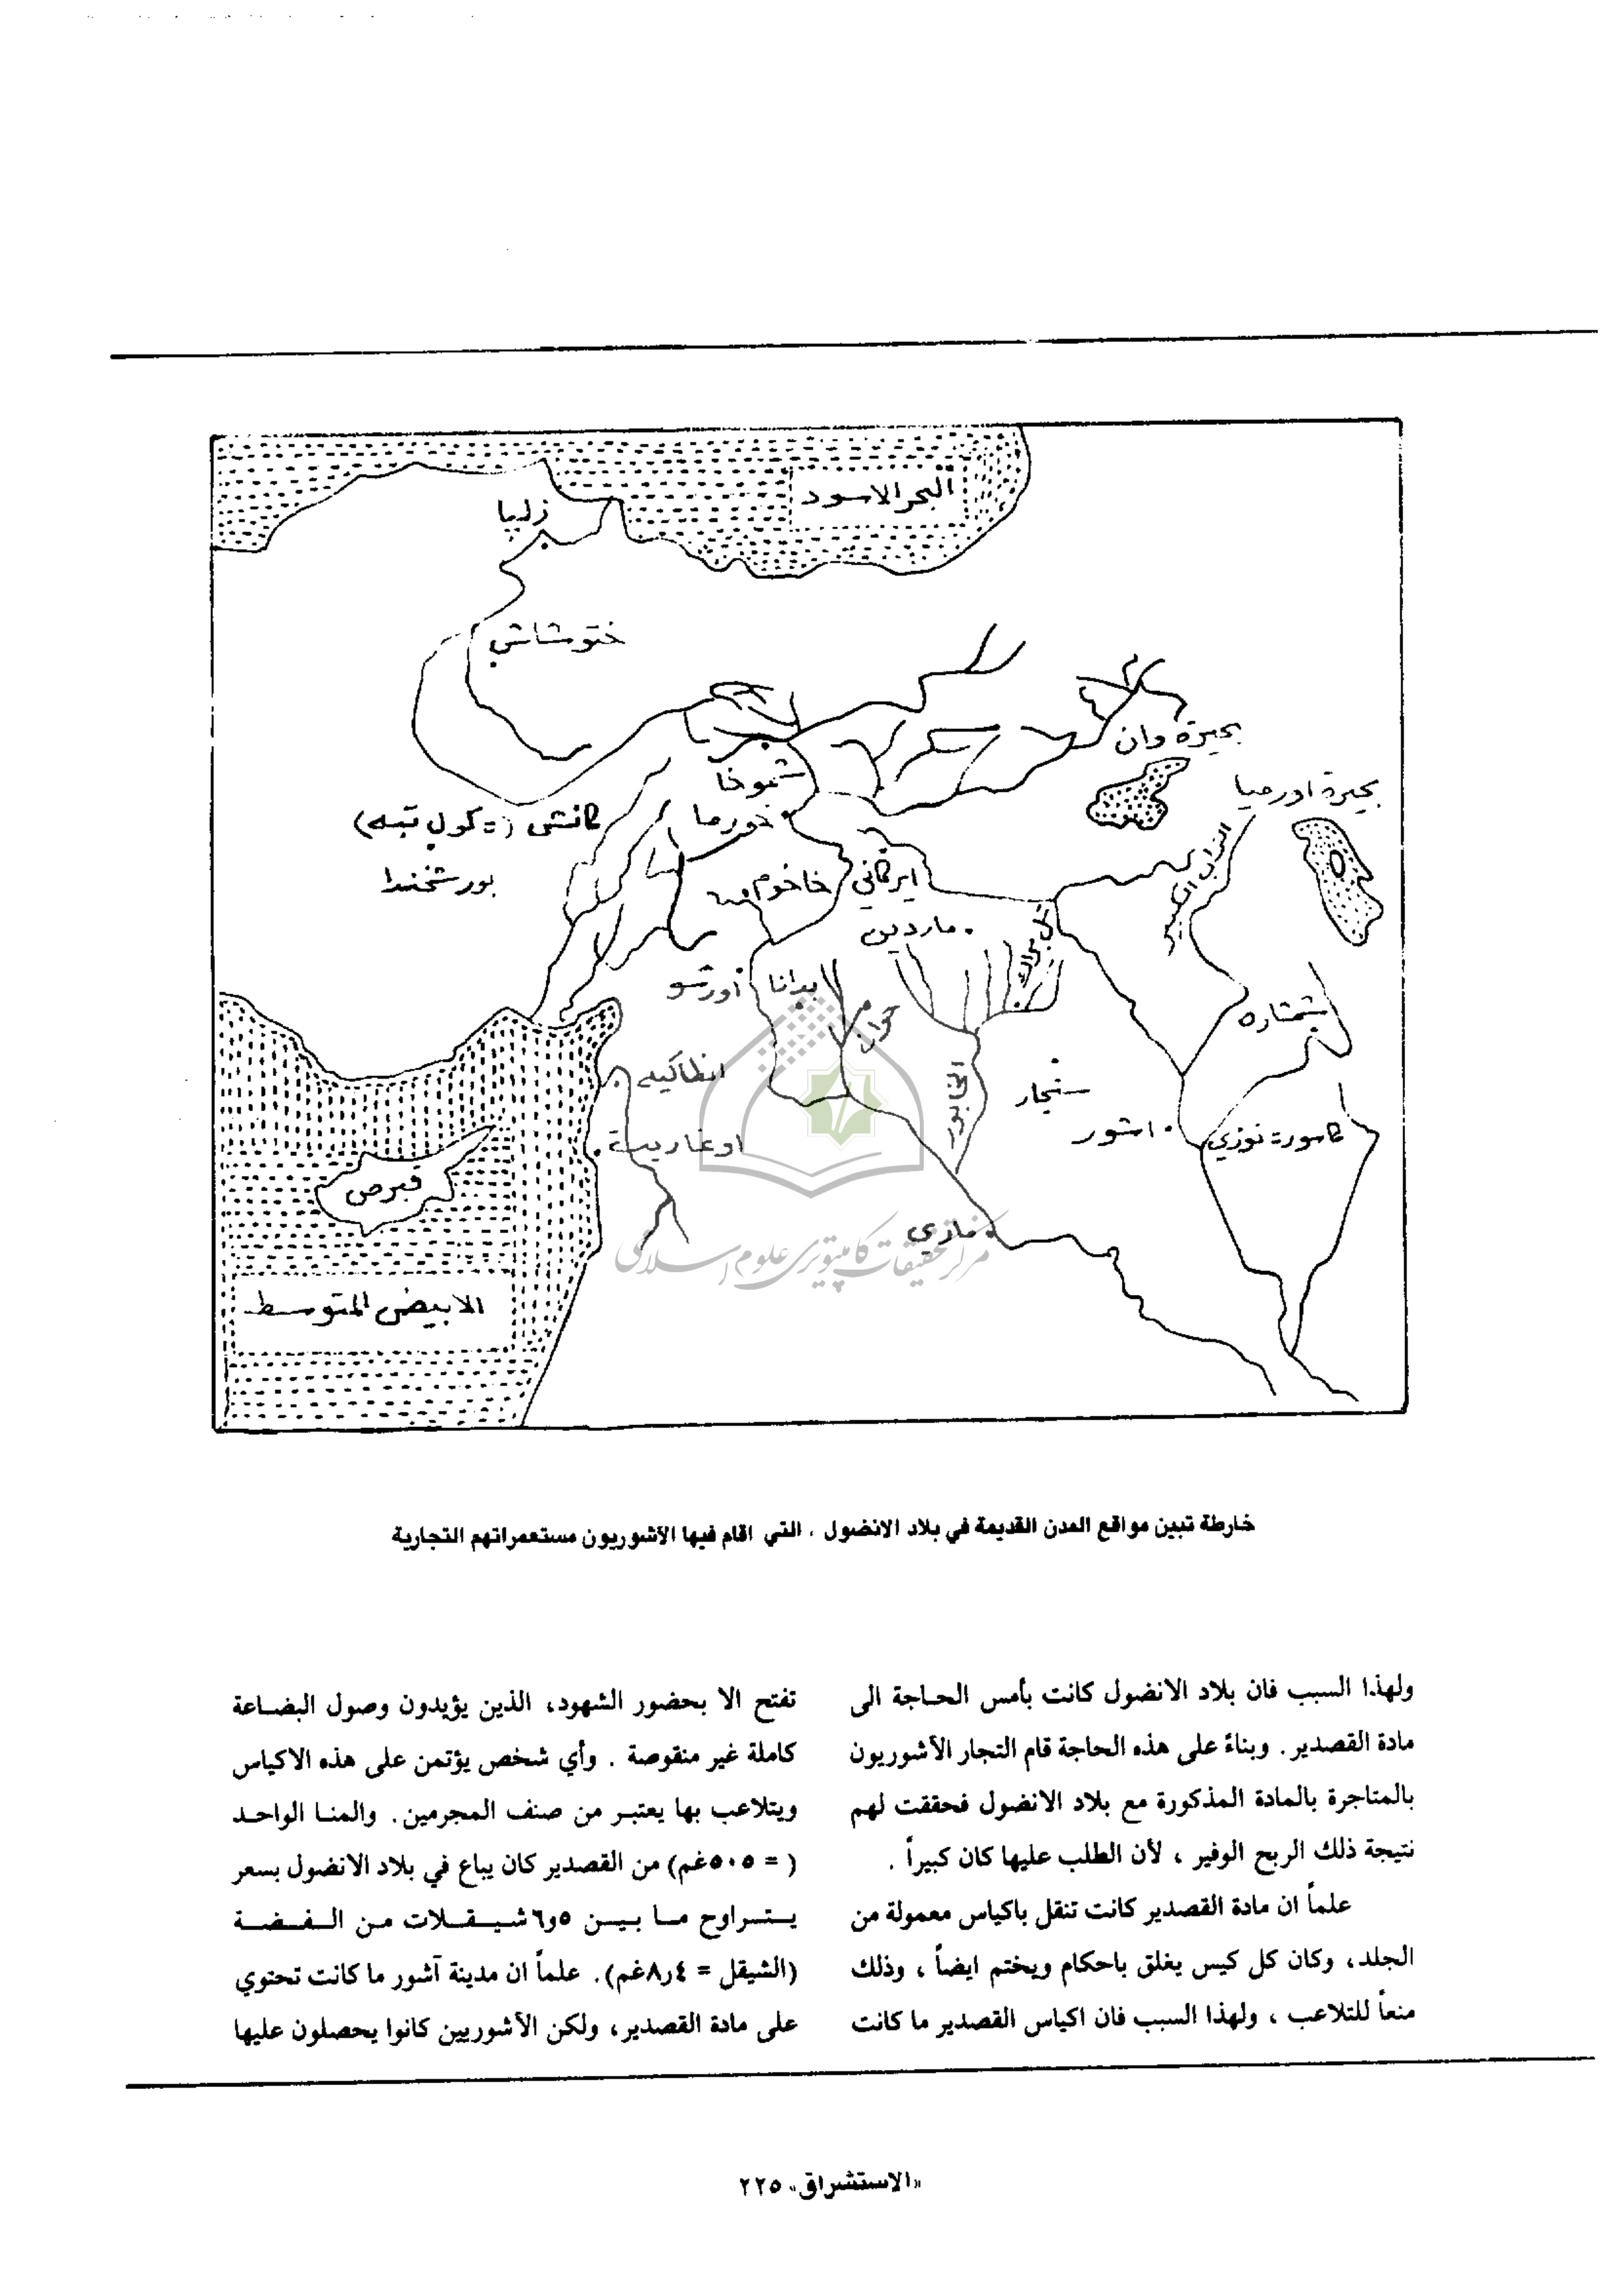 البحر الاسود
زلپا
ختوشاشي
بحيرة وان
شموخا
بحيرة اورميا
كانش (= كول تبه)
خورما
الزاب الكبير
بورشخندا
خاخوم
ايركاني
ماردين
تل براك
اورشو
بدانا
حران
شمشاره
انطاكيه
الخابور
سنجار
اشور
كاسور = نوزي
اوغاريت
قبرص
ماري
مركز تحقيقات كامپيوترى علوم اسلامى
الابيض المتوسط
خارطة تبين مواقع المدن القديمة في بلاد الانضول ، التي اقام فيها الآشوريون مستعمراتهم التجارية
ولهذا السبب فان بلاد الانضول كانت بأمس الحاجة الى
مادة القصدير. وبناءً على هذه الحاجة قام التجار الآشوريون
بالمتاجرة بالمادة المذكورة مع بلاد الانضول فحققت لهم
نتيجة ذلك الربح الوفير ، لأن الطلب عليها كان كبيراً .
علماً ان مادة القصدير كانت تنقل باكياس معمولة من
الجلد، وكان كل كيس يغلق باحكام ويختم ايضاً ، وذلك
منعاً للتلاعب ، ولهذا السبب فان اكياس القصدير ما كانت
تفتح الا بحضور الشهود، الذين يؤيدون وصول البضاعة
كاملة غير منقوصة . وأي شخص يؤتمن على هذه الاكياس
ويتلاعب بها يعتبر من صنف المجرمين. والمنا الواحد
( = ٥٠٥غم) من القصدير كان يباع في بلاد الانضول بسعر
يتراوح ما بين ٥و٦ شيقلات من الفضة
(الشيقل = ٨٫٤غم). علماً ان مدينة آشور ما كانت تحتوي
على مادة القصدير، ولكن الآشوريين كانوا يحصلون عليها
«الاستشراق» ٢٢٥